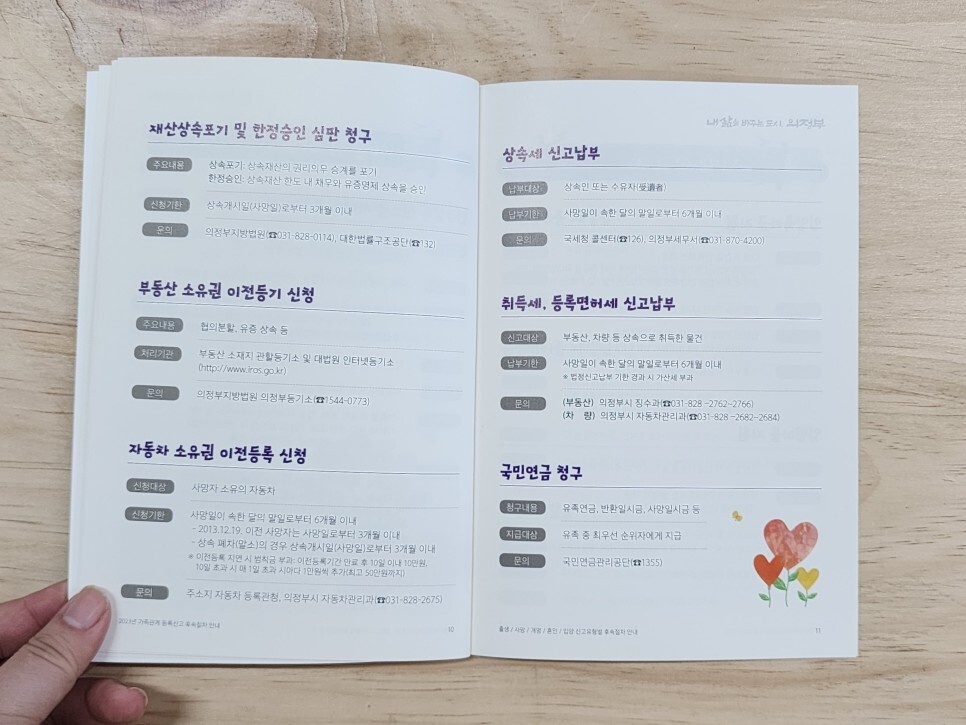 재산상속포기 및 한정승인 심판 청구
주요내용 상속포기: 상속재산의 권리의무 승계를 포기
한정승인: 상속재산 한도 내 채무와 유증명제 상속을 승인
신청기한 상속개시일(사망일)로부터 3개월 이내
문의 의정부지방법원(☎031-828-0114), 대한법률구조공단(☎132)
부동산 소유권 이전등기 신청
주요내용 협의분할, 유증 상속 등
처리기관 부동산 소재지 관할등기소 및 대법원 인터넷등기소
(http://www.iros.go.kr)
문의 의정부지방법원 의정부등기소(☎1544-0773)
자동차 소유권 이전등록 신청
신청대상 사망자 소유의 자동차
신청기한 사망일이 속한 달의 말일로부터 6개월 이내
- 2013.12.19. 이전 사망자는 사망일로부터 3개월 이내
- 상속 폐차(말소)의 경우 상속개시일(사망일)로부터 3개월 이내
※ 이전등록 지연 시 범칙금 부과: 이전등록기간 만료 후 10일 이내 10만원,
10일 초과 시 매 1일 초과 시마다 1만원씩 추가(최고 50만원까지)
문의 주소지 자동차 등록관청, 의정부시 자동차관리과(☎031-828-2675)
2023년 가족관계 등록신고 후속절차 안내
10
내 삶을 바꾸는 도시 의정부
상속세 신고납부
납부대상 상속인 또는 수유자(受遺者)
납부기한 사망일이 속한 달의 말일로부터 6개월 이내
문의 국세청 콜센터(☎126), 의정부세무서(☎031-870-4200)
취득세, 등록면허세 신고납부
신고대상 부동산, 차량 등 상속으로 취득한 물건
납부기한 사망일이 속한 달의 말일로부터 6개월 이내
※ 법정신고납부 기한 경과 시 가산세 부과
문의 (부동산) 의정부시 징수과(☎031-828 –2762~2766)
(차 량) 의정부시 자동차관리과(☎031-828 –2682~2684)
국민연금 청구
청구내용 유족연금, 반환일시금, 사망일시금 등
지급대상 유족 중 최우선 순위자에게 지급
문의 국민연금관리공단(☎1355)
출생 / 사망 / 개명 / 혼인 / 입양 신고유형별 후속절차 안내
11